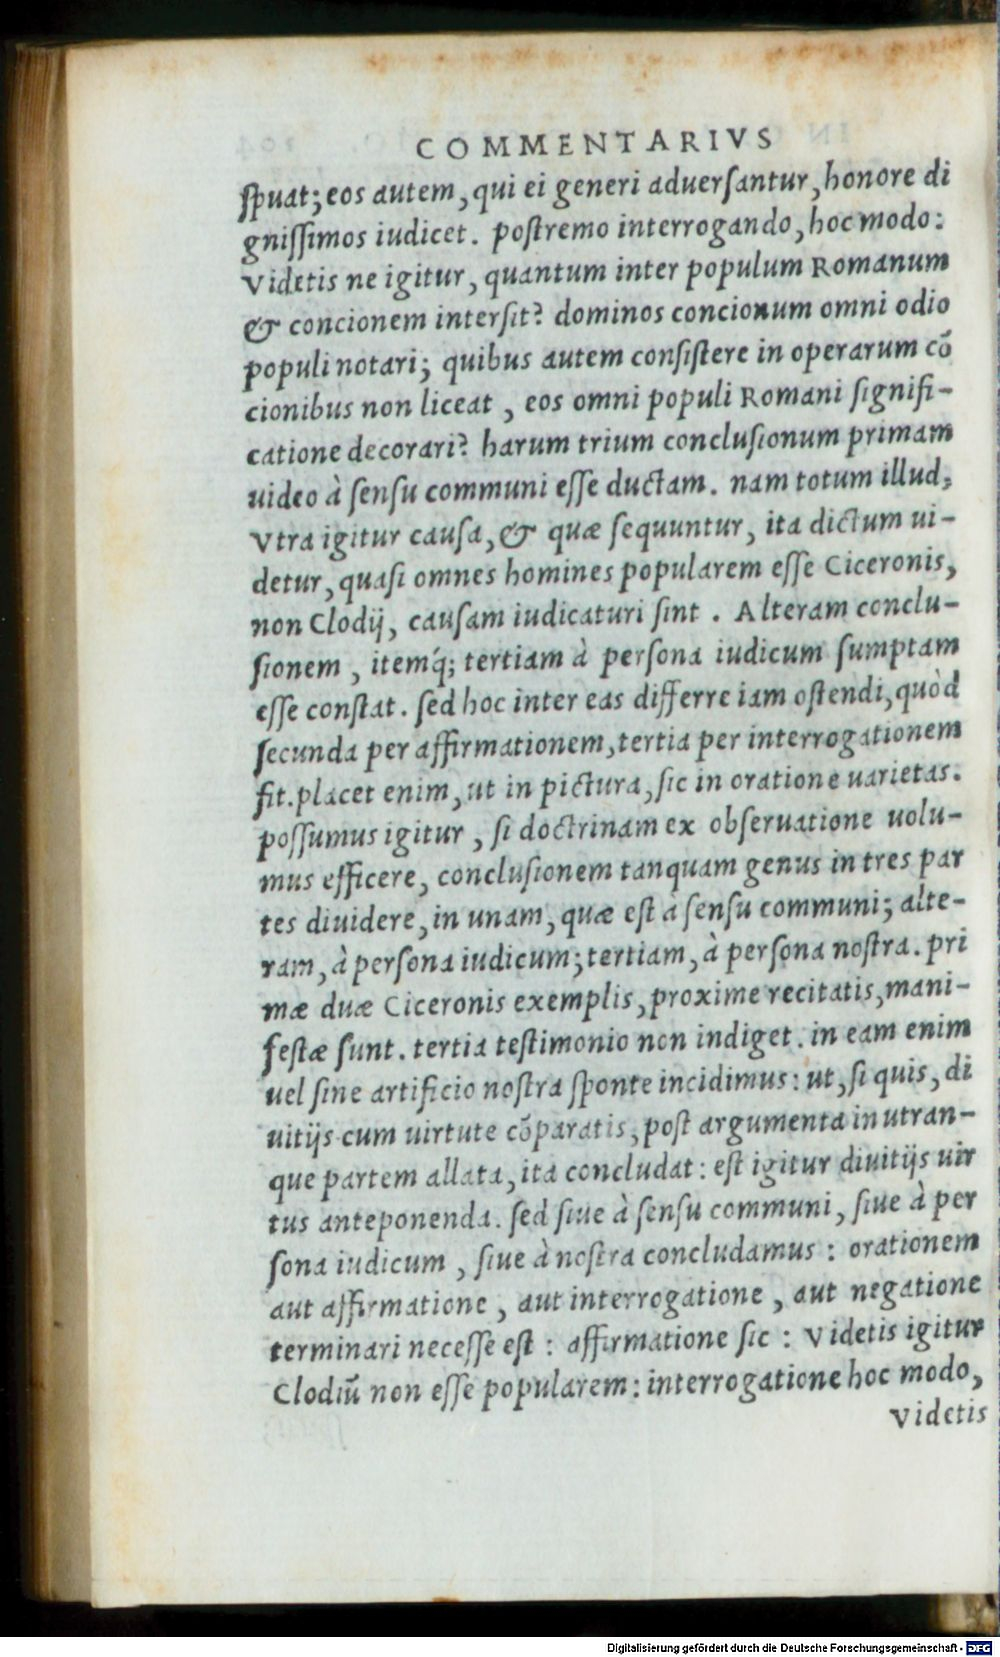 COMMENTARIVS
spuat; eos autem, qui ei generi aduersantur, honore di
gnissimos iudicet. postremo interrogando, hoc modo:
Videtis ne igitur, quantum inter populum Romanum
& concionem intersit? dominos concionum omni odio
populi notari; quibus autem consistere in operarum cō
cionibus non liceat, eos omni populi Romani signifi-
catione decorari? harum trium conclusionum primam
uideo à sensu communi esse ductam. nam totum illud,
Vtra igitur causa, & quæ sequuntur, ita dictum ui-
detur, quasi omnes homines popularem esse Ciceronis,
non Clodij, causam iudicaturi sint. Alteram conclu-
sionem, itemq́; tertiam à persona iudicum sumptam
esse constat. sed hoc inter eas differre iam ostendi, quòd
secunda per affirmationem, tertia per interrogationem
fit. placet enim, ut in pictura, sic in oratione uarietas.
possumus igitur, si doctrinam ex obseruatione uolu-
mus efficere, conclusionem tanquam genus in tres par
tes diuidere, in unam, quæ est a sensu communi; alte-
ram, à persona iudicum; tertiam, à persona nostra. pri
mæ duæ Ciceronis exemplis, proxime recitatis, mani-
festæ sunt. tertia testimonio non indiget. in eam enim
uel sine artificio nostra sponte incidimus: ut, si quis, di
uitijs cum uirtute cōparatis, post argumenta in utran-
que partem allata, ita concludat: est igitur diuitijs uir
tus anteponenda. sed siue à sensu communi, siue à per
sona iudicum, siue à nostra concludamus: orationem
aut affirmatione, aut interrogatione, aut negatione
terminari necesse est: affirmatione sic: Videtis igitur
Clodiū non esse popularem: interrogatione hoc modo,
Videtis
Digitalisierung gefördert durch die Deutsche Forschungsgemeinschaft - DFG